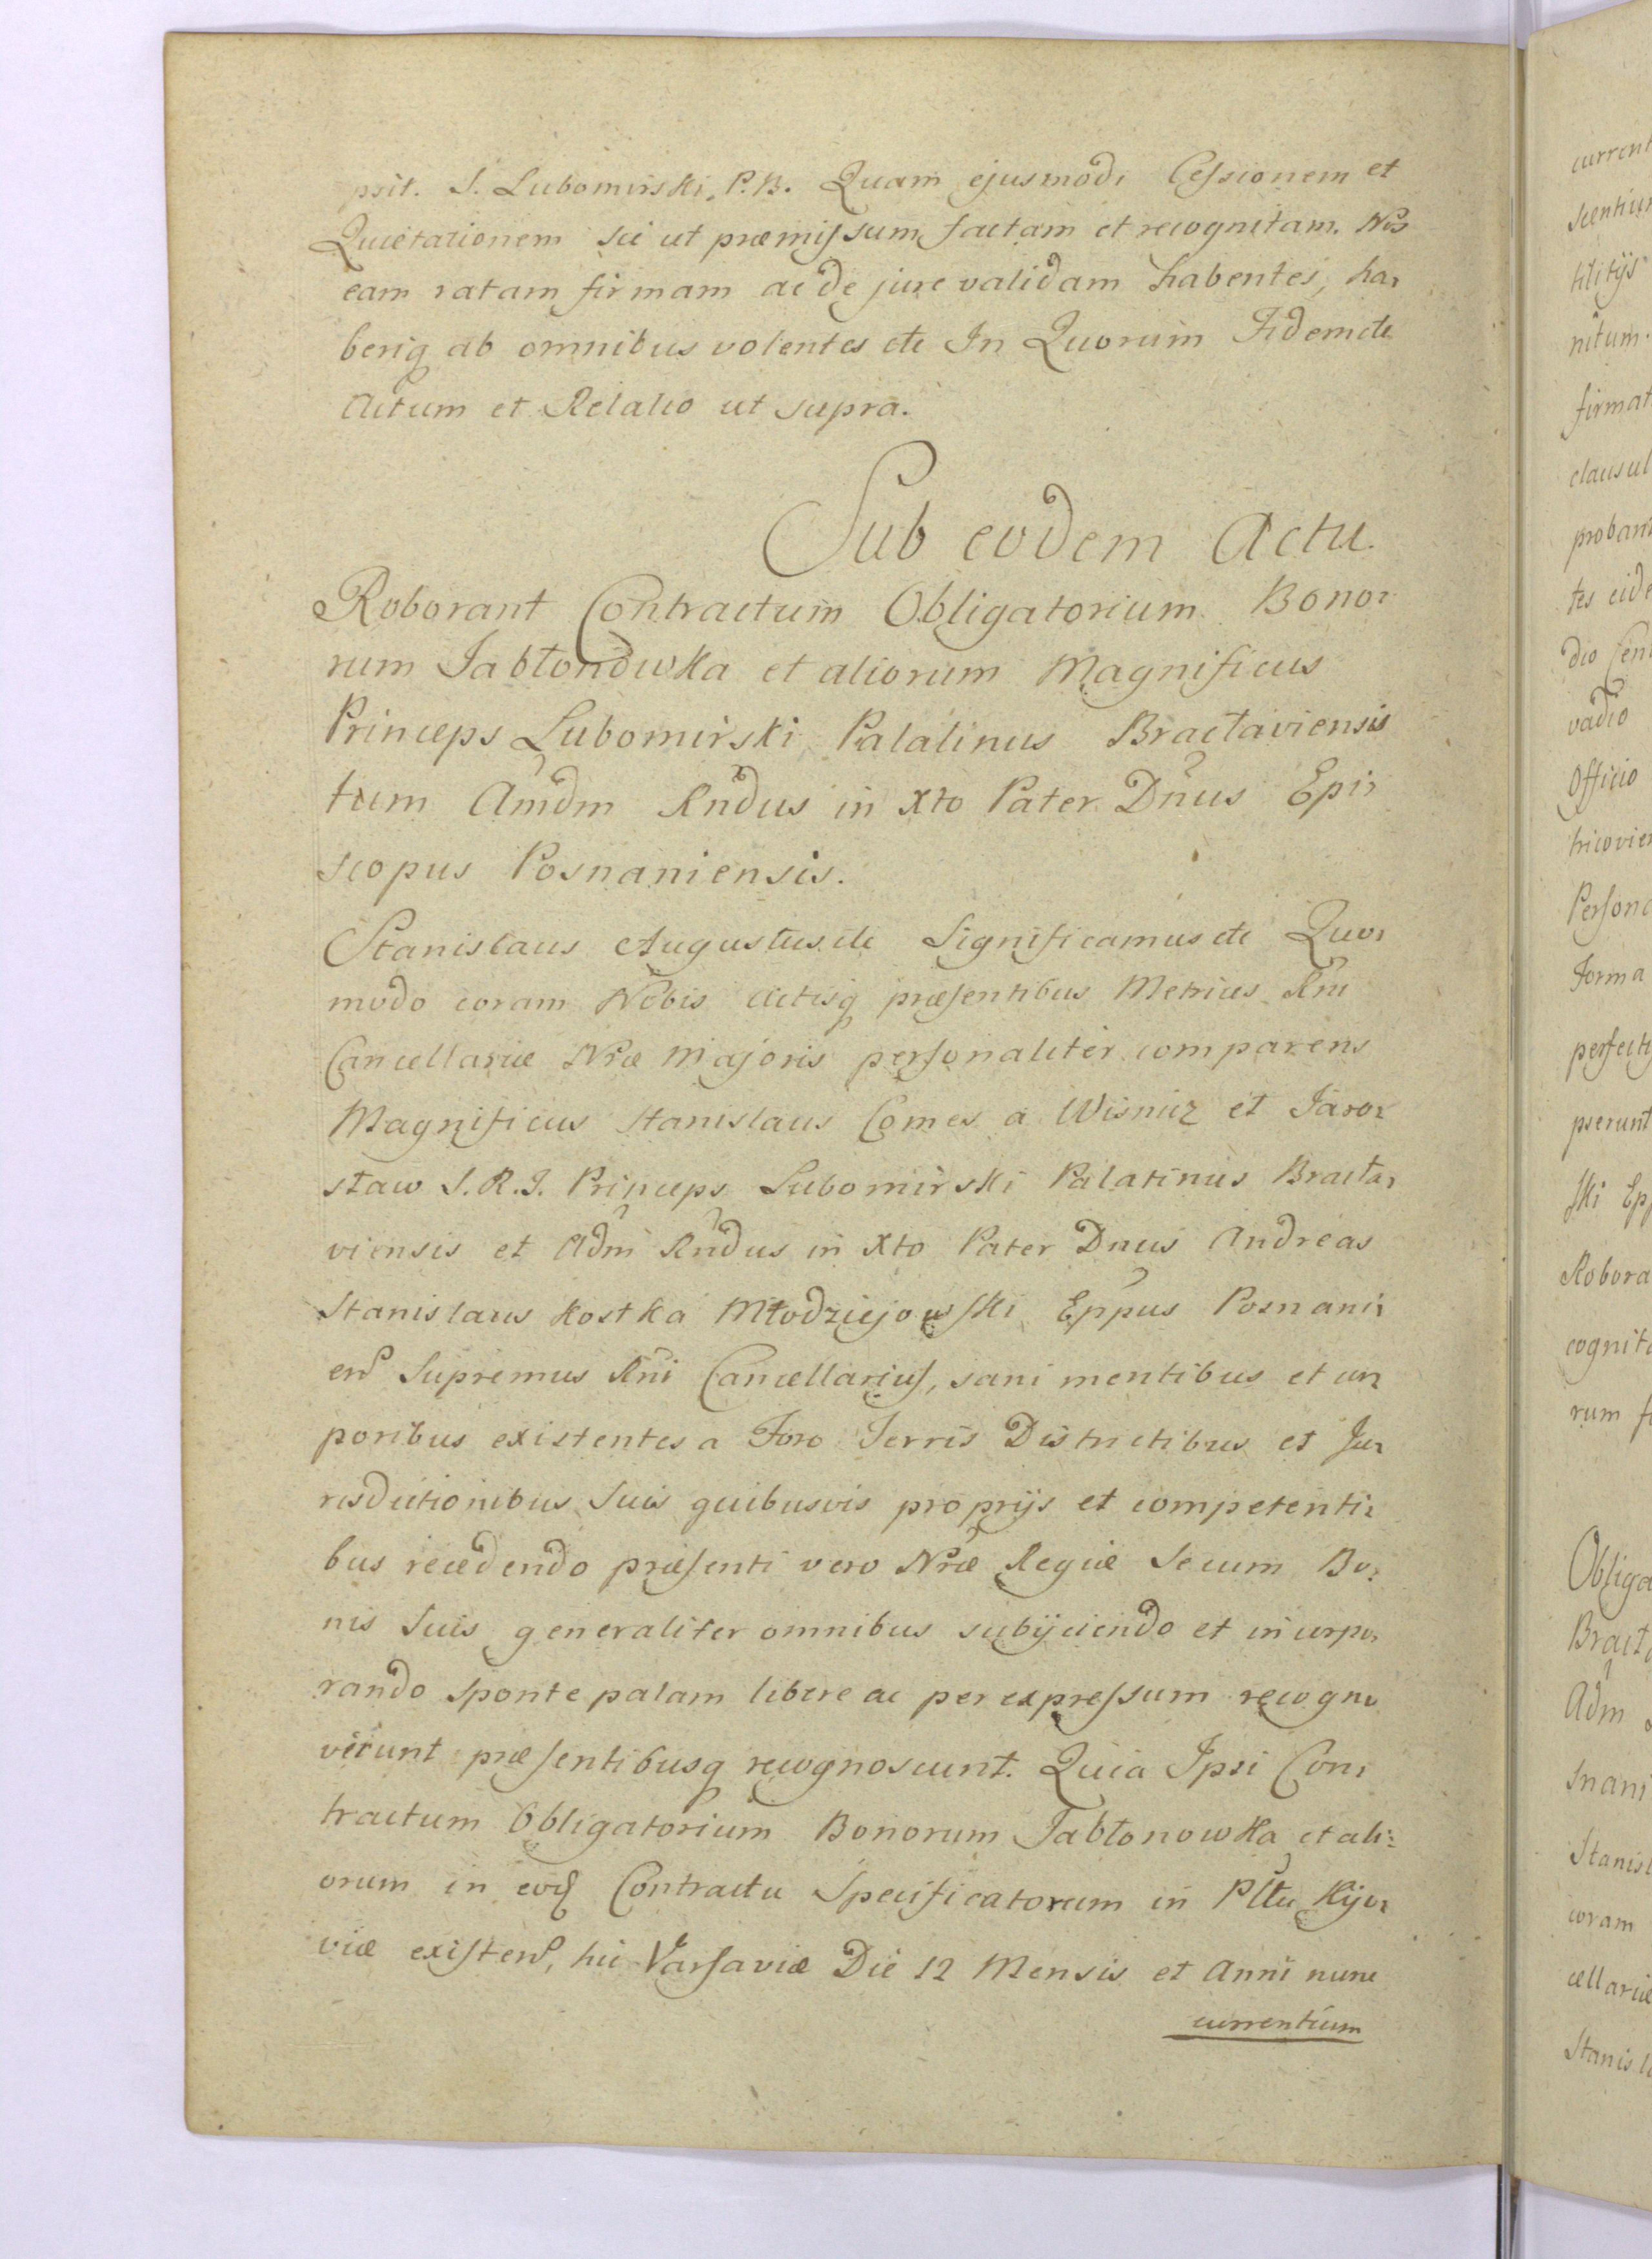 psit. S. Lubomirski, P.B. Quam ejusmodi Cessionem et
Quietationem sic ut præmissum factam et recognitam. Nos
eam ratam firmam ac de jure validam habentes, ha-
beriq ab omnibus volentes etc In Quorum Fidem etc
Actum et Relatio ut supra.
Sub eodem Actu.
Roborant Contractum Obligatorium Bono-
rum Jabłonowka et aliorum Magnificus
Princeps Lubomirski Palatinus Bracłaviensis
tum Amdm Rndus in Xto Pater Dnus Epi-
scopus Posnaniensis.
Stanislaus Augustus etc Significamus etc Quo-
modo coram Nobis Actisq præsentibus Metrices Rni
Cancellariæ Nræ Majoris personaliter comparens
Magnificus Stanislaus Comes a Wisnicz et Jaro-
sław S.R.J. Princeps Lubomirski Palatinus Bracła-
viensis et Adm Rndus in Xto Pater Dnus Andreas
Stanislaus Kostka Młodziejowski Eppus Posnani-
ens Supremus Rni Cancellarius, sani mentibus et cor-
poribus existentes a Foro Terris Districtibus et Ju-
risdictionibus Suis quibusvis proprijs et competenti-
bus recedendo præsenti vero Nræ Regiæ Secum Bo-
nis Suis generaliter omnibus subijciendo et incorpo-
rando sponte palam libere ac per expressum recogno
verunt præsentibusq recognoscunt. Quia Ipsi Con-
tractum Obligatorium Bonorum Jabłonowka et ali-
orum in eod Contractu Specificatorum in Płtu Kijo-
viæ existens, hic Varsaviæ Die 12 Mensis et Anni nunc
currentium
current
scentiu
tilitijs
nitum.
firmat
clausul
proban
tes eide
dio Cen
vadio
Officio
tricovie
Persona
Forma
perfect
pserunt
ski Ep
Robora
cognita
rum f
Obliga
Bracł
Adm
snani
Stanisl
coram
cellariæ
Stanisla